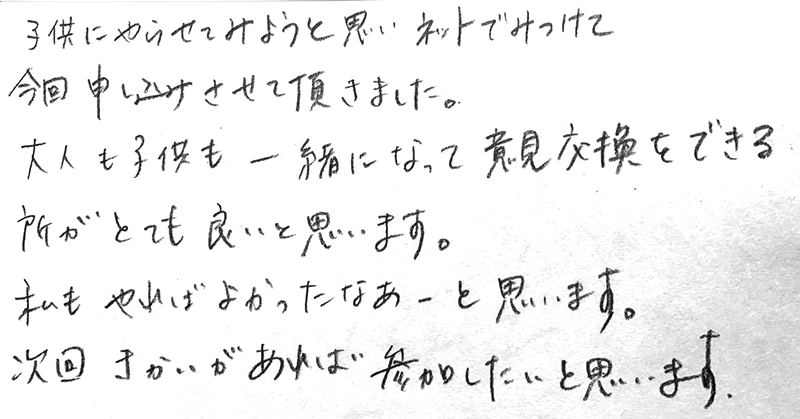 子供にやらせてみようと思い ネットでみつけて
今回 申し込みさせて頂きました。
大人も子供も 一緒になって 意見交換をできる
所が とても 良いと思います。
私も やればよかったなあーと思います。
次回 きかいがあれば 参加したいと思います.